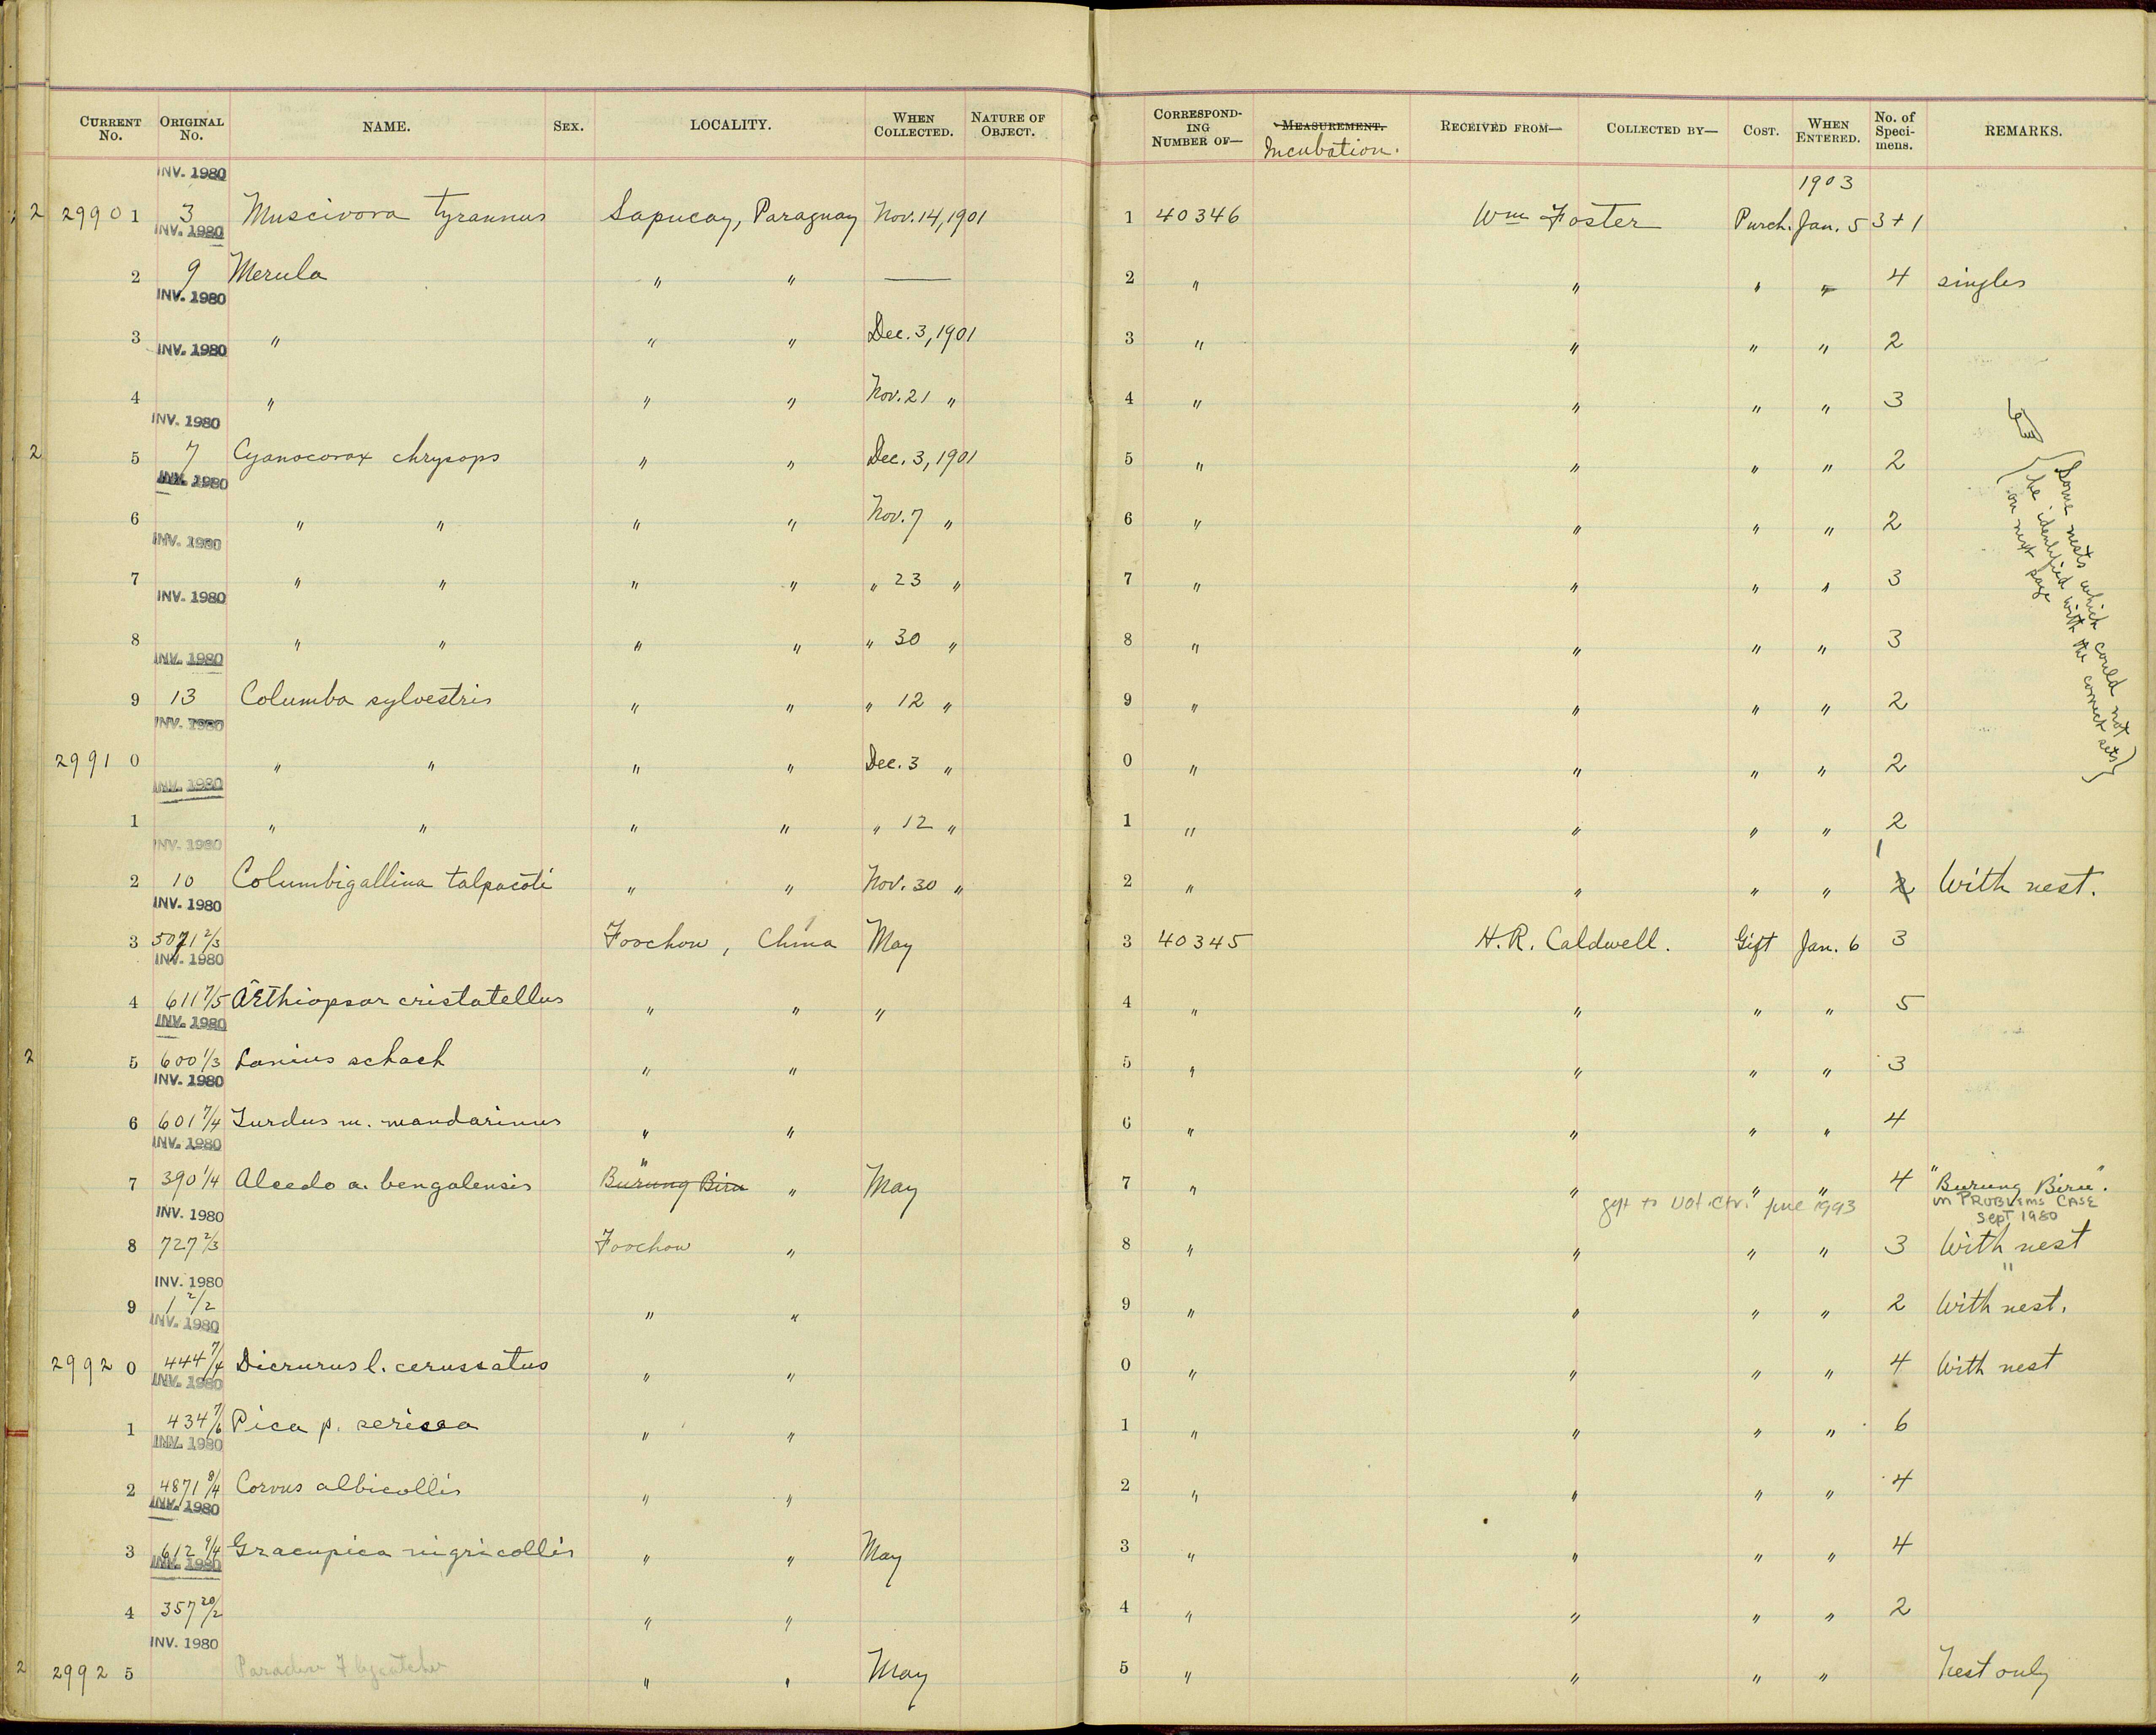 CURRENT No. ORIGINAL No. NAME. SEX. LOCALITY. WHEN COLLECTED. NATURE OF OBJECT. CORRESPONDING NUMBER OF— MEASUREMENT. Incubation. RECEIVED FROM— COLLECTED BY— COST. WHEN ENTERED. No. of Specimens. REMARKS.
INV. 1980 1903
2 2990 1 3 Muscivora tyrannus Sapucay, Paraguay Nov. 14, 1901 1 40346 Wm Foster Purch. Jan. 5 3+1
INV. 1980
2 9 Merula " " — 2 " " " " 4 singles
INV. 1980
3 " " " Dec. 3, 1901 3 " " " " 2
INV. 1980
4 " " " Nov. 21 " 4 " " " " 3
INV. 1980
2 5 7 Cyanocorax chrysops " " Dec. 3, 1901 5 " " " " 2
INV. 1980
6 " " " " Nov. 7 " 6 " " " " 2
INV. 1980
7 " " " " " 23 " 7 " " " " 3
INV. 1980
8 " " " " " 30 " 8 " " " " 3
INV. 1980
9 13 Columba sylvestris " " " 12 " 9 " " " " 2
INV. 1980
2991 0 " " " " Dec. 3 " 0 " " " " 2
INV. 1980
1 " " " " " 12 " 1 " " " " 2
INV. 1980
2 10 Columbigallina talpacoti " " Nov. 30 " 2 " " " " 2 1 With nest.
INV. 1980
{Some nests which could not
be identified with the correct sets
on next page}
3 5071 2/3 Foochow, China May 3 40345 H. R. Caldwell. Gift Jan. 6 3
INV. 1980
4 611 7/5 Æthiopsar cristatellus " " " 4 " " " " 5
INV. 1980
2 5 600 1/3 Lanius schach " " 5 " " " " 3
INV. 1980
6 601 7/4 Turdus m. mandarinus " " 6 " " " " 4
INV. 1980
7 390 1/4 Alcedo a. bengalensis Burung Biru " " May 7 " " " " 4 "Burung Biru".
INV. 1980 gift to June 1993 in PROBLEMS CASE
Sept 1980
8 727 2/3 Foochow " 8 " " " " 3 With nest
INV. 1980 "
9 1 2/2 " " 9 " " " " 2 With nest.
INV. 1980
2992 0 444 7/4 Dicrurus l. cerussatus " " 0 " " " " 4 With nest
INV. 1980
1 434 7/6 Pica p. sericea " " 1 " " " " 6
INV. 1980
2 4871 8/4 Corvus albicollis " " 2 " " " " 4
INV. 1980
3 612 9/4 Gracupica nigricollis " " May 3 " " " " 4
INV. 1980
4 357 20/2 " " 4 " " " " 2
INV. 1980
2 2992 5 Paradise Flycatcher " " May 5 " " " " Nest only